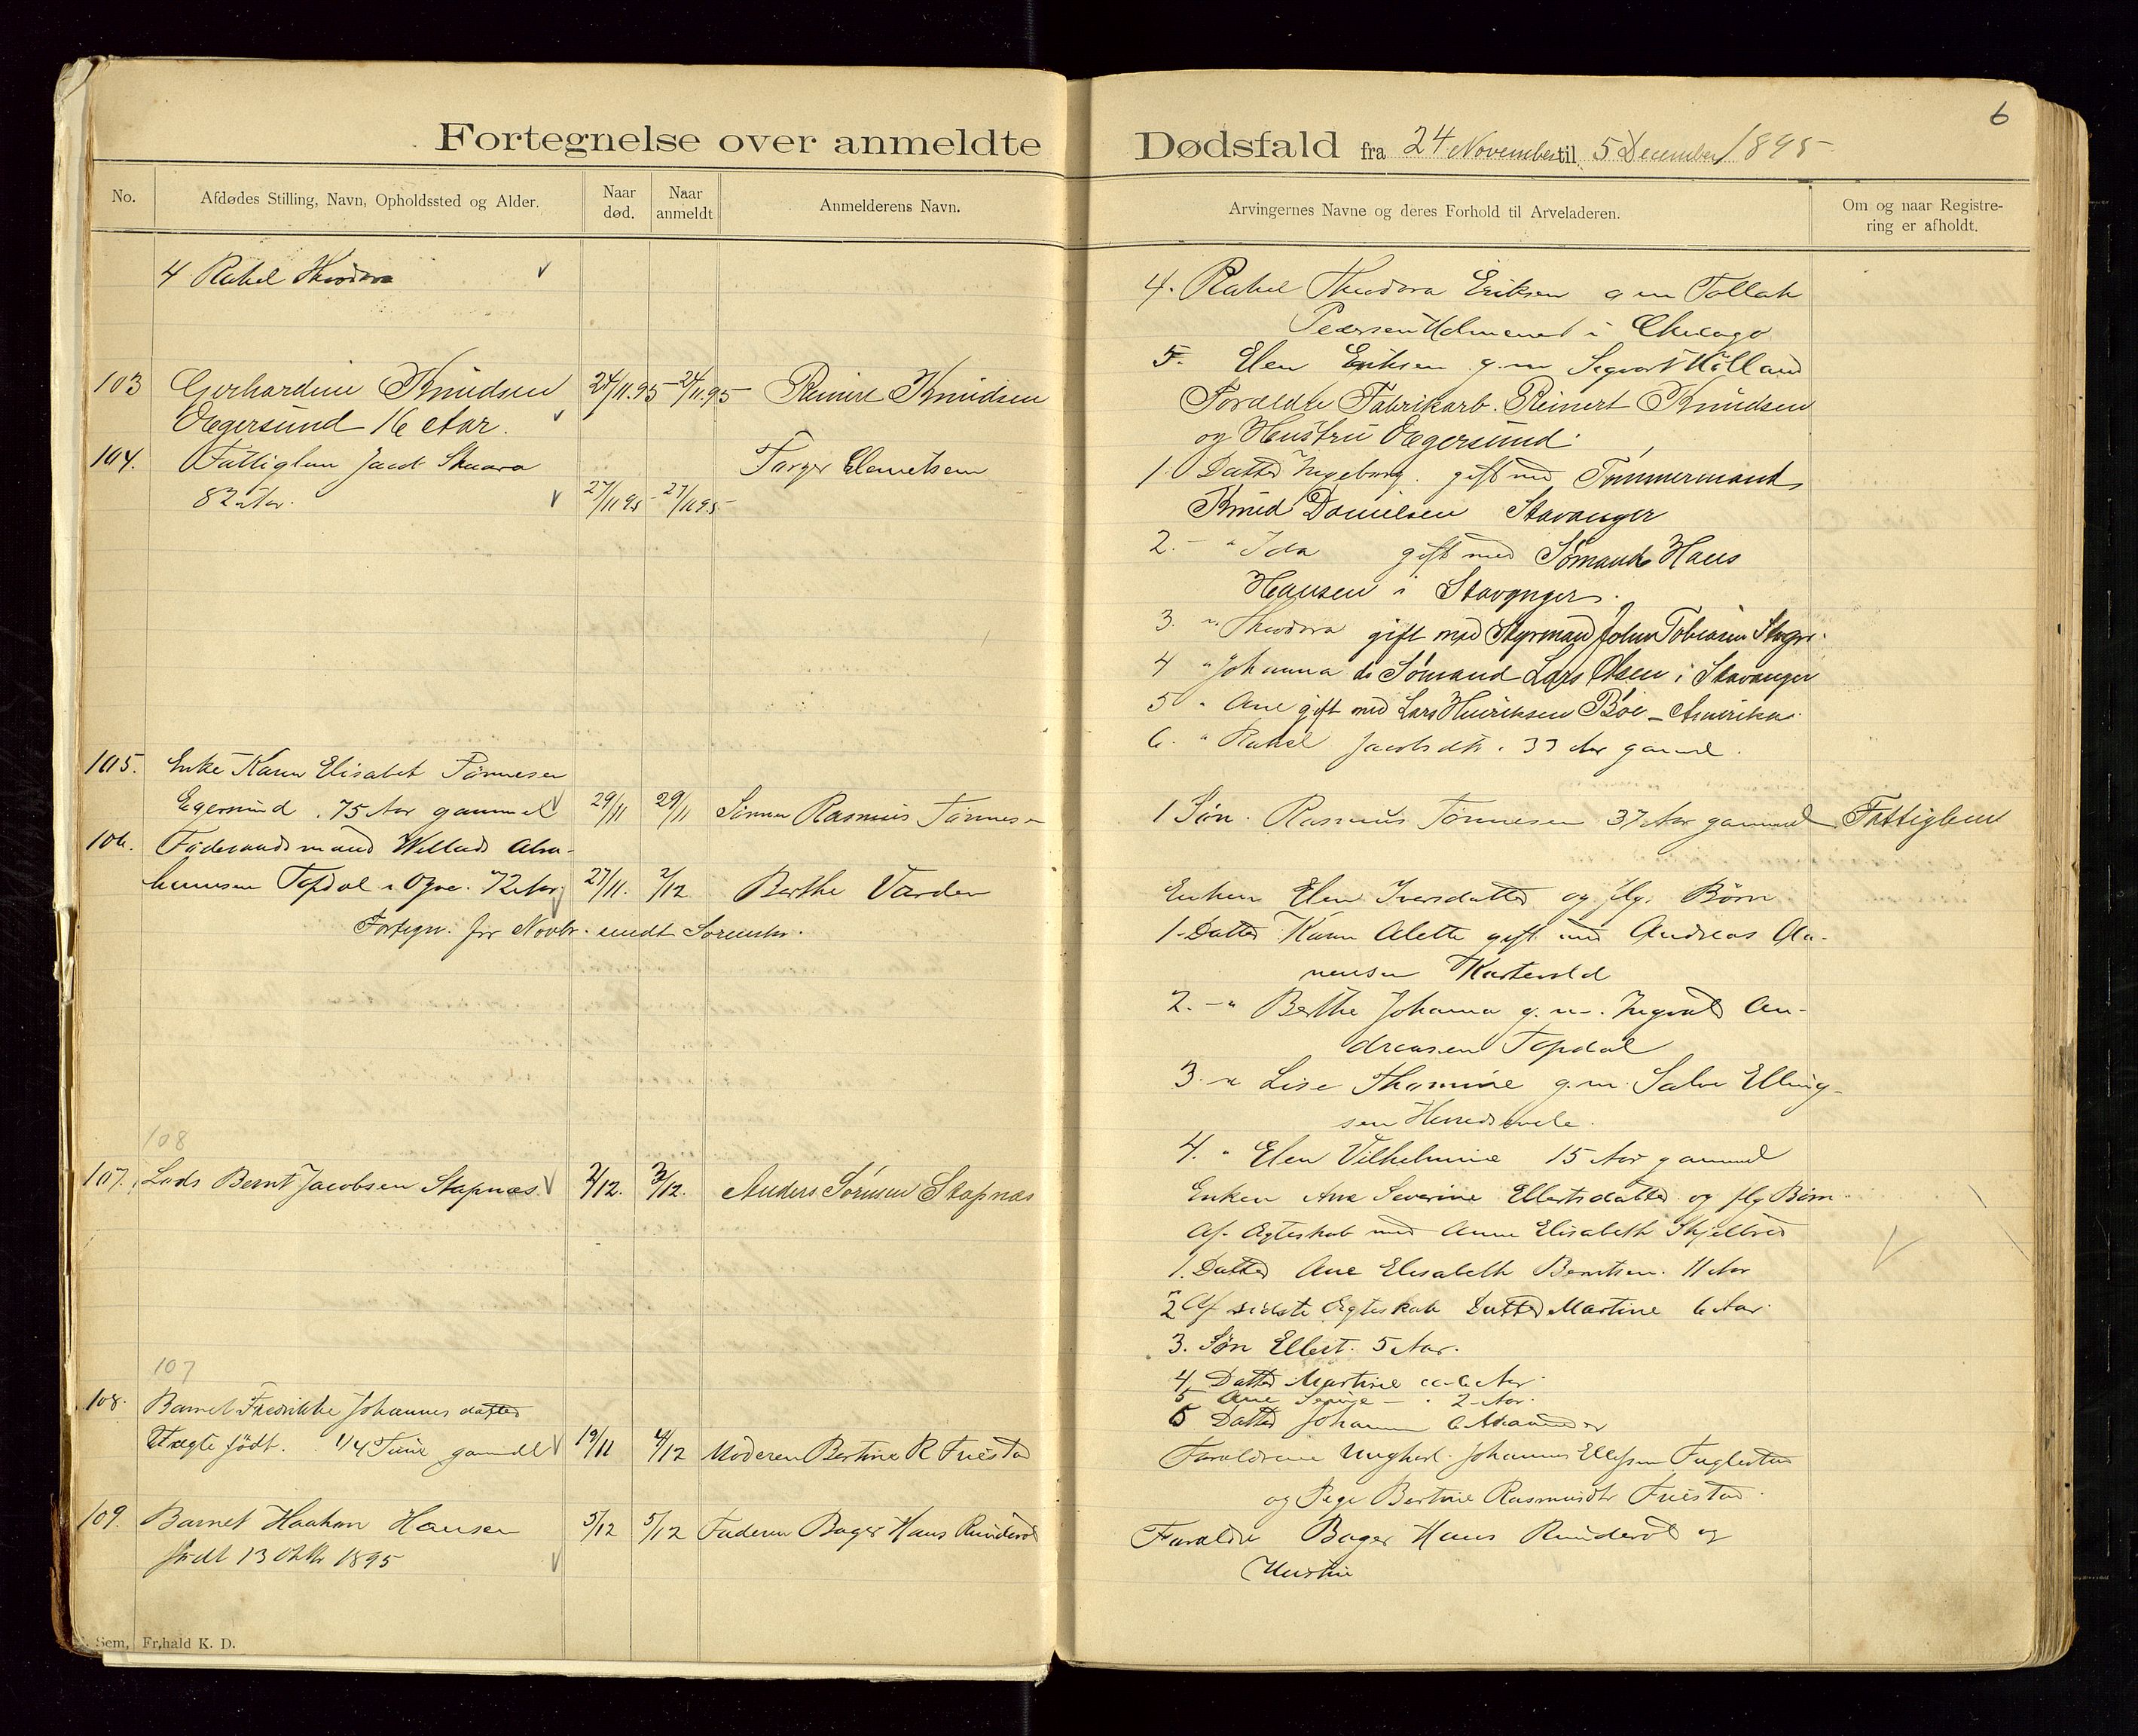 6
Fortegnelse over anmeldte Dødsfald fra 24 November til 5 December 1895
No.
Afdødes Stilling, Navn, Opholdssted og Alder.
Naar død.
Naar anmeldt
Anmelderens Navn.
Arvingernes Navne og deres Forhold til Arveladeren.
Om og naar Registrering er afholdt.
4 Rakel Theodora
103 Gerhardine Knudsen 24/11.95 - 24/11.95 - Reinert Knudsen
Eegersund 16 Aar.
104. Fattiglem Jacob Skaara Torger Clemetsen
82 Aar. 27/11 95 - 27/11 95 -
105. Enke Karen Elisabet Tønnesen
Egersund. 75 Aar gammel 29/11 29/11 Sønnen Rasmus Tønnesen
106. Føderaadsmand Willads Abra-
hamsen Topdal i Ogne. 72 Aar 27/11. 2/12 Berthe Varden
Fortegn. for Novbr. sendt Sorenskr.
108
107. Lods Bernt Jacobsen Stapnæs 2/12. 3/12. Anders Sørensen Stapnæs
107
108. Barnet Fredrikke Johannesdatter
Uægte født. 1/4 Time gammel 19/11 4/12 Moderen Bertine R Fuestad
109. Barnet Haakon Hansen 5/12 5/12 Faderen Bager Hans Runderød
født 13 Oktbr 1895
4. Rakel Theodora Eriksen g m Tollak
Pedersen i Chicago
5. Elen Eriksen g.m Segvart Hølland
Forældre Fabrikarb. Reinert Knudsen
og Hustru Eegersund
1. Datter Ingeborg. gift med Tømmermand
Knud Danielsen Stavanger
2. - " Ida gift med Sømand Hans
Hansen i Stavanger.
3. " Theodora gift med Styrmand John Tobiasen Stvgr.
4 " Johanna do Sømand Lars Olsen i Stavanger
5 " Ane gift med Lars Henriksen Bøe - Amerika.
6. " Rakel Jacobsdtr. 33 Aar gammel.
1 Søn. Rasmus Tønnesen 37 Aar gammel Fattiglem
Enken Elen Iversdatter og flg. Børn
1. Datter Karen Alette gift med Andreas Aa-
nensen
2. - " Berthe Johanna g. m. Ingvald An-
dreasen Topdal
3. " Lise Thomine g.m. Salve Elling-
sen
4. " Elen Vilhelmine 15 Aar gammel
Enken Ane Severine Ellertsdatter og flg Børn
Af Ægteskab med Anne Elisabeth
1. Datter Ane Elisabeth Berntsen. 11 Aar
2 Af sidste Ægteskab Datter Martine 6 Aar.
3. Søn Ellert. 5 Aar.
4 Datter Martine 6 Aar
5 Ane - " 2 Aar.
6 Datter Johanne 6 Maaneder
Forældrene Ungkarl. Johannes Fuglestad
og Pige Bertine Rasmusdtr Fuestad.
Forældre Bager Hans Runderød og
Hustru
Sem, Fr.hald K. D.